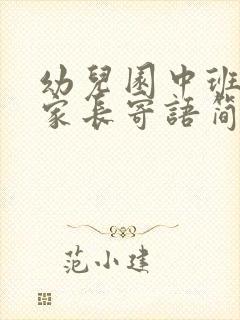 幼兒園中班
家長寄語簡
范小建